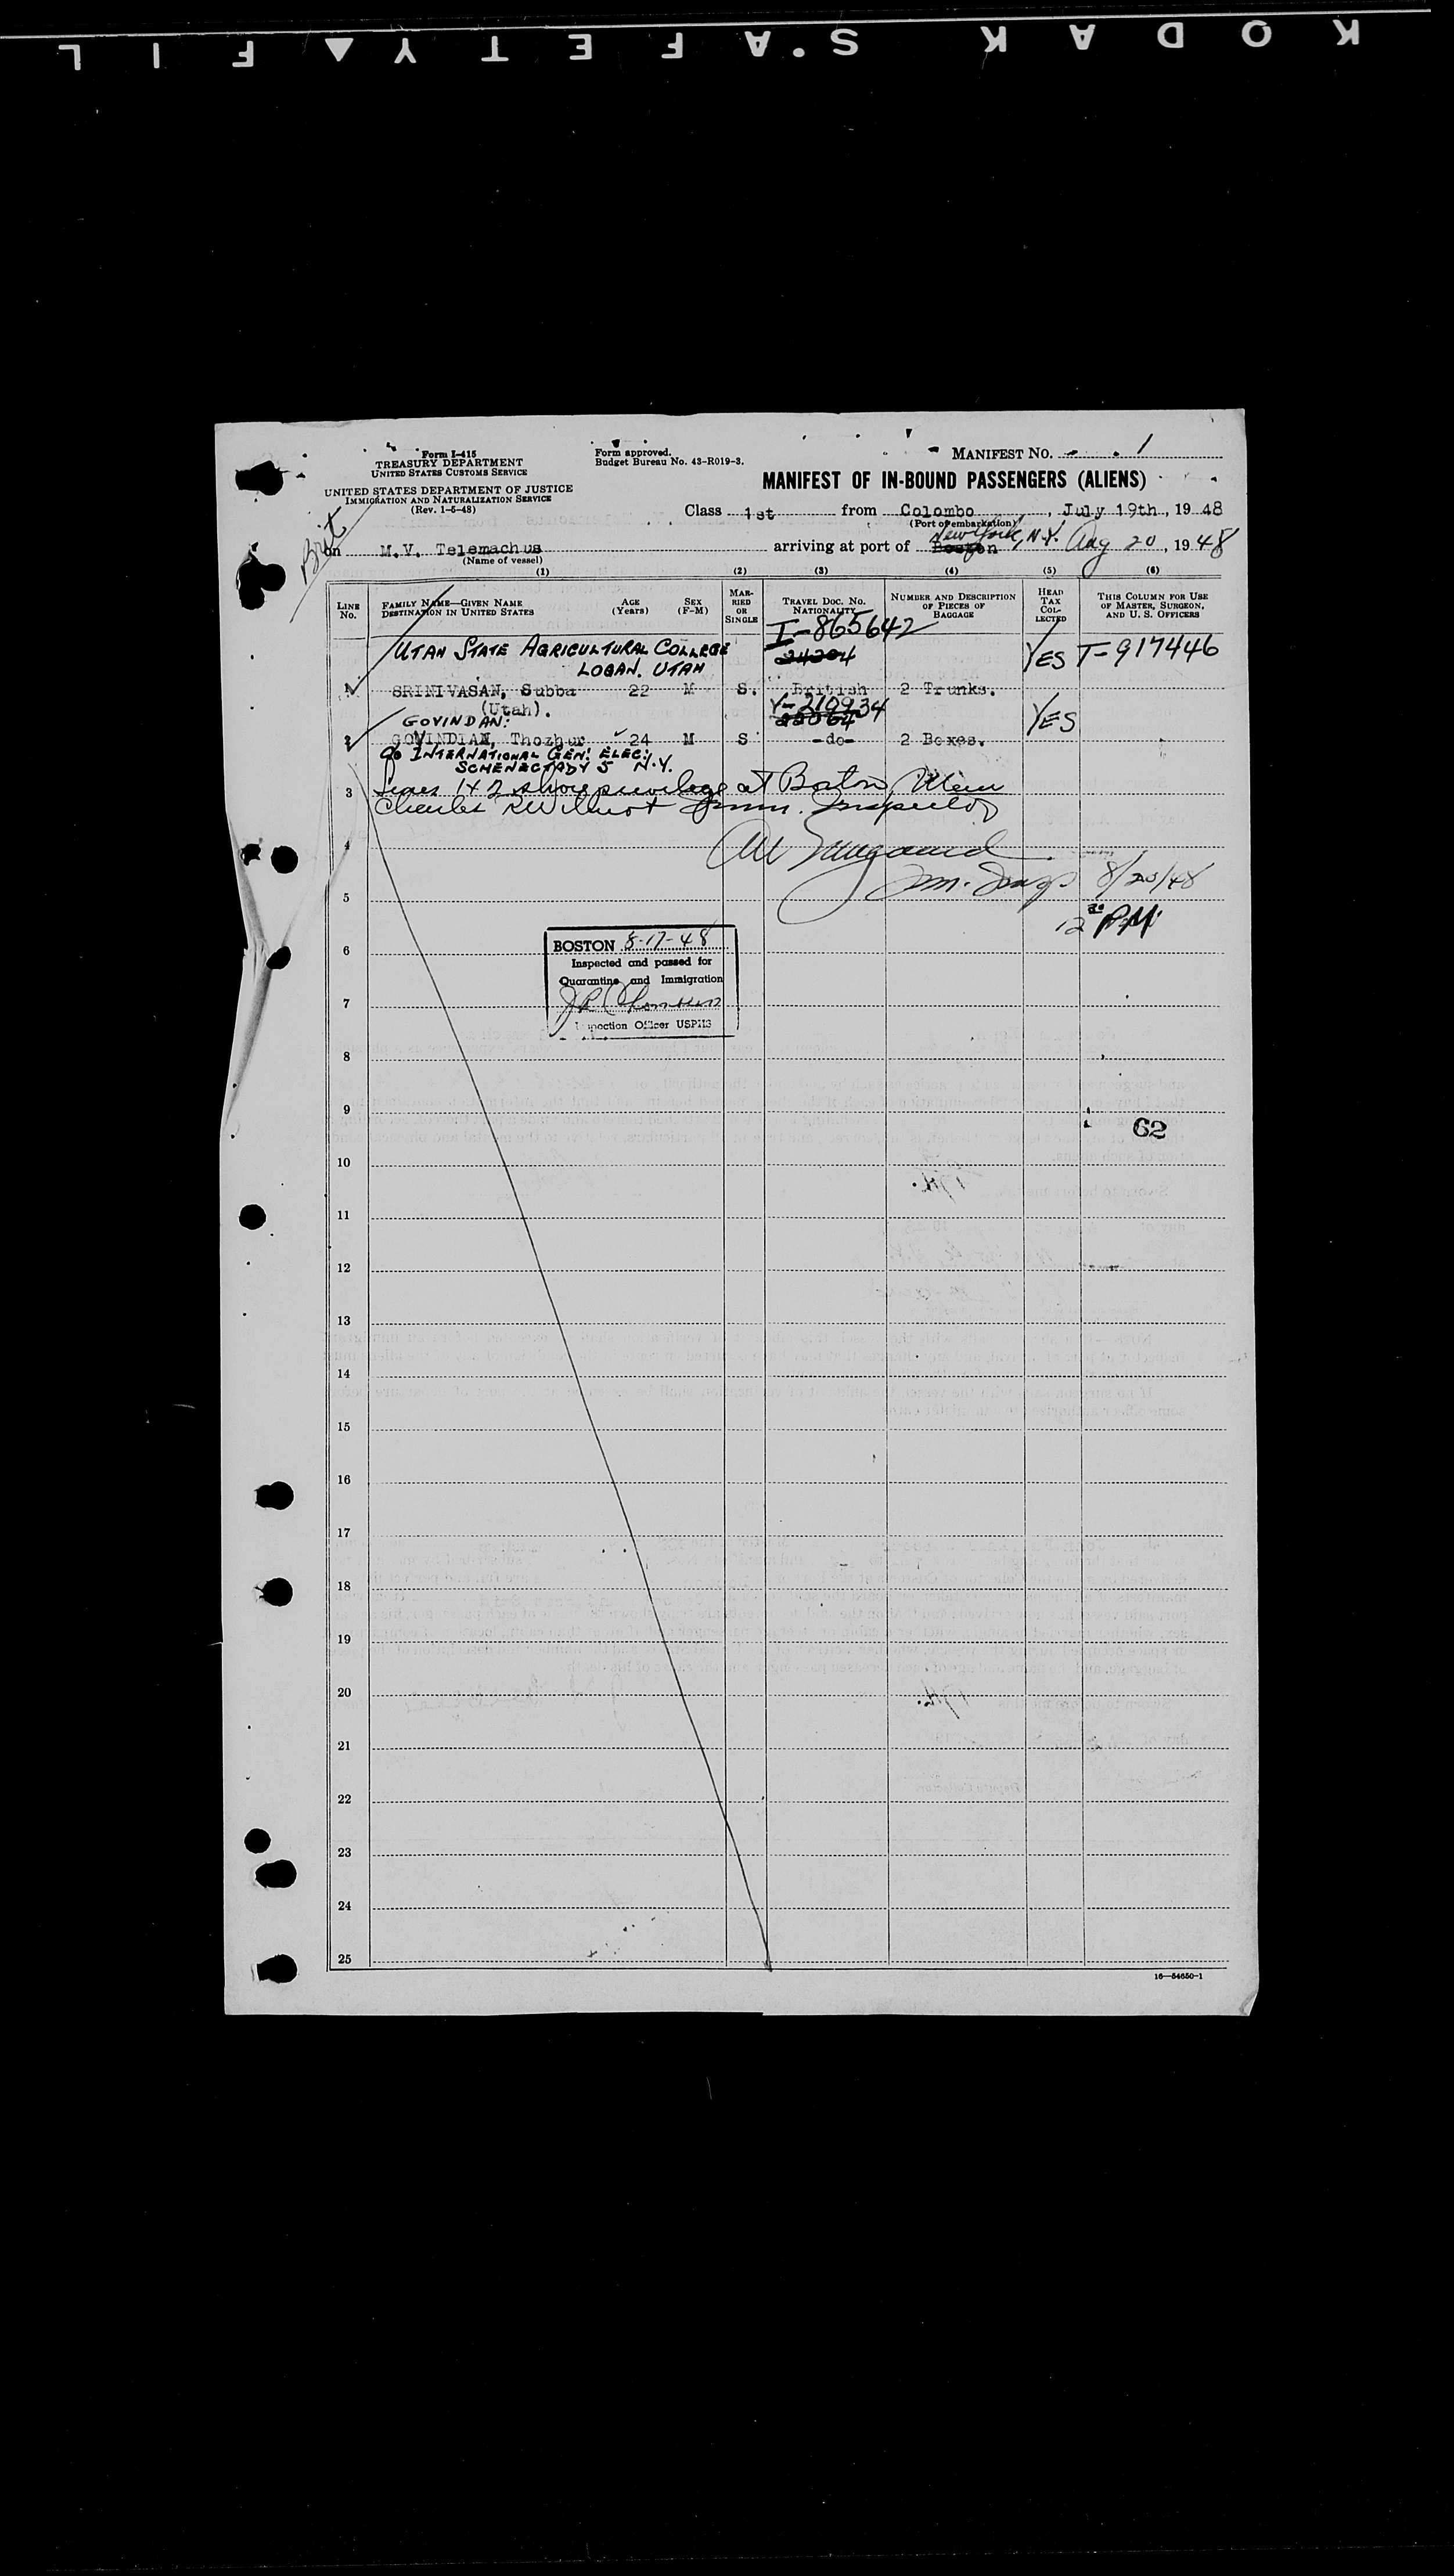 KODAK SAFETY FIL
Form I-415
TREASURY DEPARTMENT
UNITED STATES CUSTOMS SERVICE
UNITED STATES DEPARTMENT OF JUSTICE
IMMIGRATION AND NATURALIZATION SERVICE
(Rev. 1-5-48)
Form approved.
Budget Bureau No. 43-R019-3.
MANIFEST NO. 1
MANIFEST OF IN-BOUND PASSENGERS (ALIENS)
Class 1st from Colombo, July 19th., 1948
(Port of embarkation)
Brit
on M.V. Telemachus arriving at port of Boston New York, N.Y. Aug 20, 1948
(Name of vessel)
(1) (2) (3) (4) (5) (6)
LINE No. FAMILY NAME—GIVEN NAME DESTINATION IN UNITED STATES AGE (Years) SEX (F-M) MARRIED OR SINGLE TRAVEL DOC. NO. NATIONALITY NUMBER AND DESCRIPTION OF PIECES OF BAGGAGE HEAD TAX COLLECTED THIS COLUMN FOR USE OF MASTER, SURGEON, AND U. S. OFFICERS
I-865642
UTAH STATE AGRICULTURAL COLLEGE 24204 YES T-917446
LOGAN. UTAH
1 SRINIVASAN, Subba 22 M S. British 2 Trunks.
(Utah). Y-210934
GOVINDAN: 22064 YES
2 GOVINDIAN, Thozhur 24 M S -do- 2 Boxes.
c/o INTERNATIONAL GEN! ELEC:
SCHENECTADY 5 N.Y.
3 Lines 1 & 2 shore privilege at Boston,
Charles Wilmot Immn. Inspector
4
Im. Insp. 8/20/48
5
12 PM
6
BOSTON 8-17-48
Inspected and passed for
Quarantine and Immigration
7
Inspection Officer USPHS
8
9
62
10
11
12
13
14
15
16
17
18
19
20
21
22
23
24
25
16—54650-1